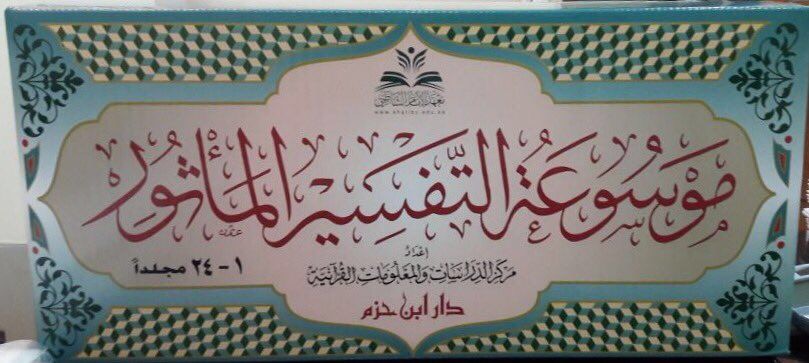 معهد الإمام الشاطبي
www.shatiby.edu.sa
مَوْسُوعَةُ التَّفْسِيْرِ المَأْثُورِ
إعداد
مركز الدراسات والمعلومات القرآنية
١ - ٢٤ مجلداً
دار ابن حزم